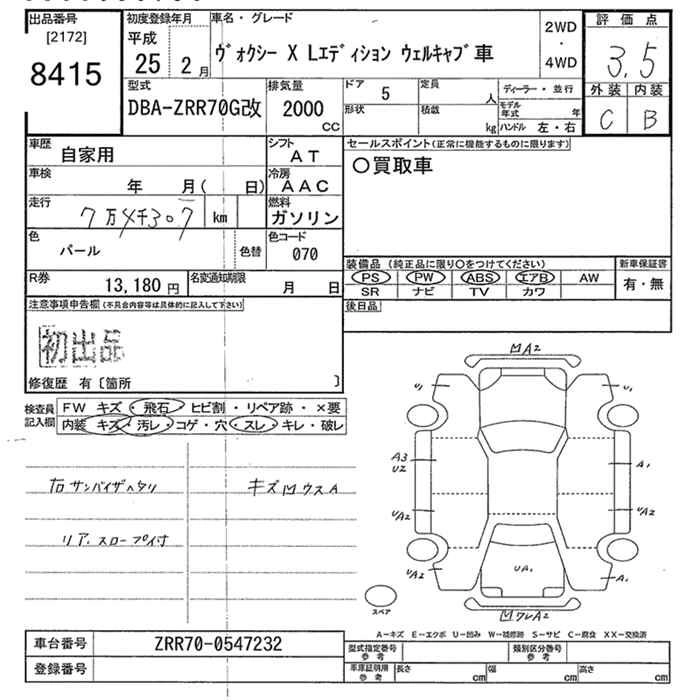 出品番号
[2172]
8415
初度登録年月
平成
25 2月
車名・グレード
ヴォクシー X Lエディション ウェルキャブ車
2WD
・
4WD
評価点
3.5
外装 内装
C B
型式
DBA-ZRR70G改
排気量
2000
CC
ドア 5
形状
定員 人
積載 kg
ディーラー・並行
モデル年式 年
ハンドル 左・右
車歴
自家用
シフト
AT
車検
年 月( 日)
冷房
AAC
走行
7万4千307 km
燃料
ガソリン
色
パール
色替
色コード
070
R券
13,180円
名変通知期限
月 日
セールスポイント(正常に機能するものに限ります)
〇買取車
装備品(純正品に限り〇をつけてください)
PS PW ABS エアB AW
SR ナビ TV カワ
新車保証書
有・無
後日品
注意事項申告欄(不具合内容等は具体的に記入して下さい)
初出品
修復歴 有〔箇所 〕
検査員記入欄
FW キズ・飛石・ヒビ割・リペア跡・×要
内装 キズ・汚レ・コゲ・穴・スレ・キレ・破レ
右サンバイザヘタリ
キズMウスA
リア.スロープ付
MA2
U1
U1
A3
U2
A1
UA2
UA2
UA2
UA1
A1
MワレA2
スペア
A−キズ E−エクボ U−凹み W−補修跡 S−サビ C−腐食 XX−交換済
車台番号 ZRR70-0547232
登録番号
型式指定番号 参考
類別区分番号 参考
車庫証明用 参考
長さ cm 幅 cm 高さ cm